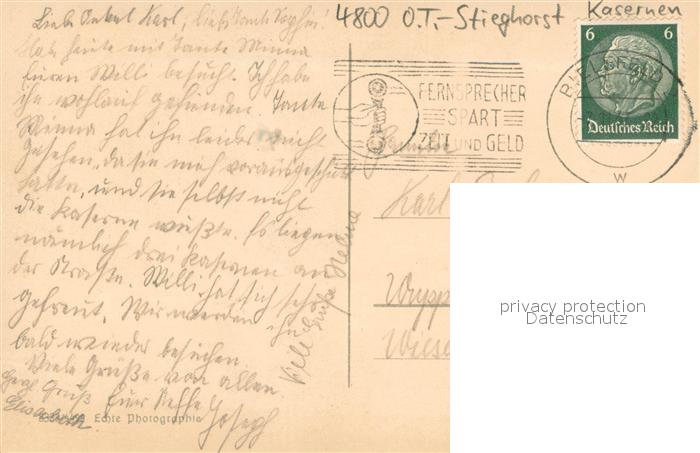 4800 O.T.-Stieghorst Kasernen
Lieb. Onkel Karl, liebe Tante Sophie!
Hab heute mit Tante Minna
Euren Willi besucht. Ich habe
ihn wohlauf gefunden. Tante
Minna hat ihn leider nicht
gesehen, da sie mich vorausgeschickt
hatte, und sie selbst nicht
die Kaserne wußte. Es liegen
nämlich drei Kasernen an
der Straße. Willi hat sich sehr
gefreut. Wir werden ihn
bald wieder besuchen.
Viele Grüße von allen
Euer Neffe
Joseph
Gruß
Elisabeth
Viele Grüße
Echte Photographie
FERNSPRECHER
SPART
ZEIT UND GELD
BIELEFELD
W
6 6
Deutsches Reich
Familie
Karl
Wupp
Wiese
privacy protection
Datenschutz